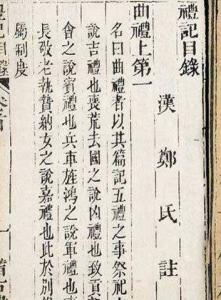 禮記目錄
漢鄭氏註
曲禮上第一
名曰曲禮者以其篇記五禮之事祭祀
說吉禮也喪荒去國之說凶禮也致貢
會之說賓禮也兵車旌鴻之說軍禮也事
長敬老執贄納女之說嘉禮也此於別
屬制度